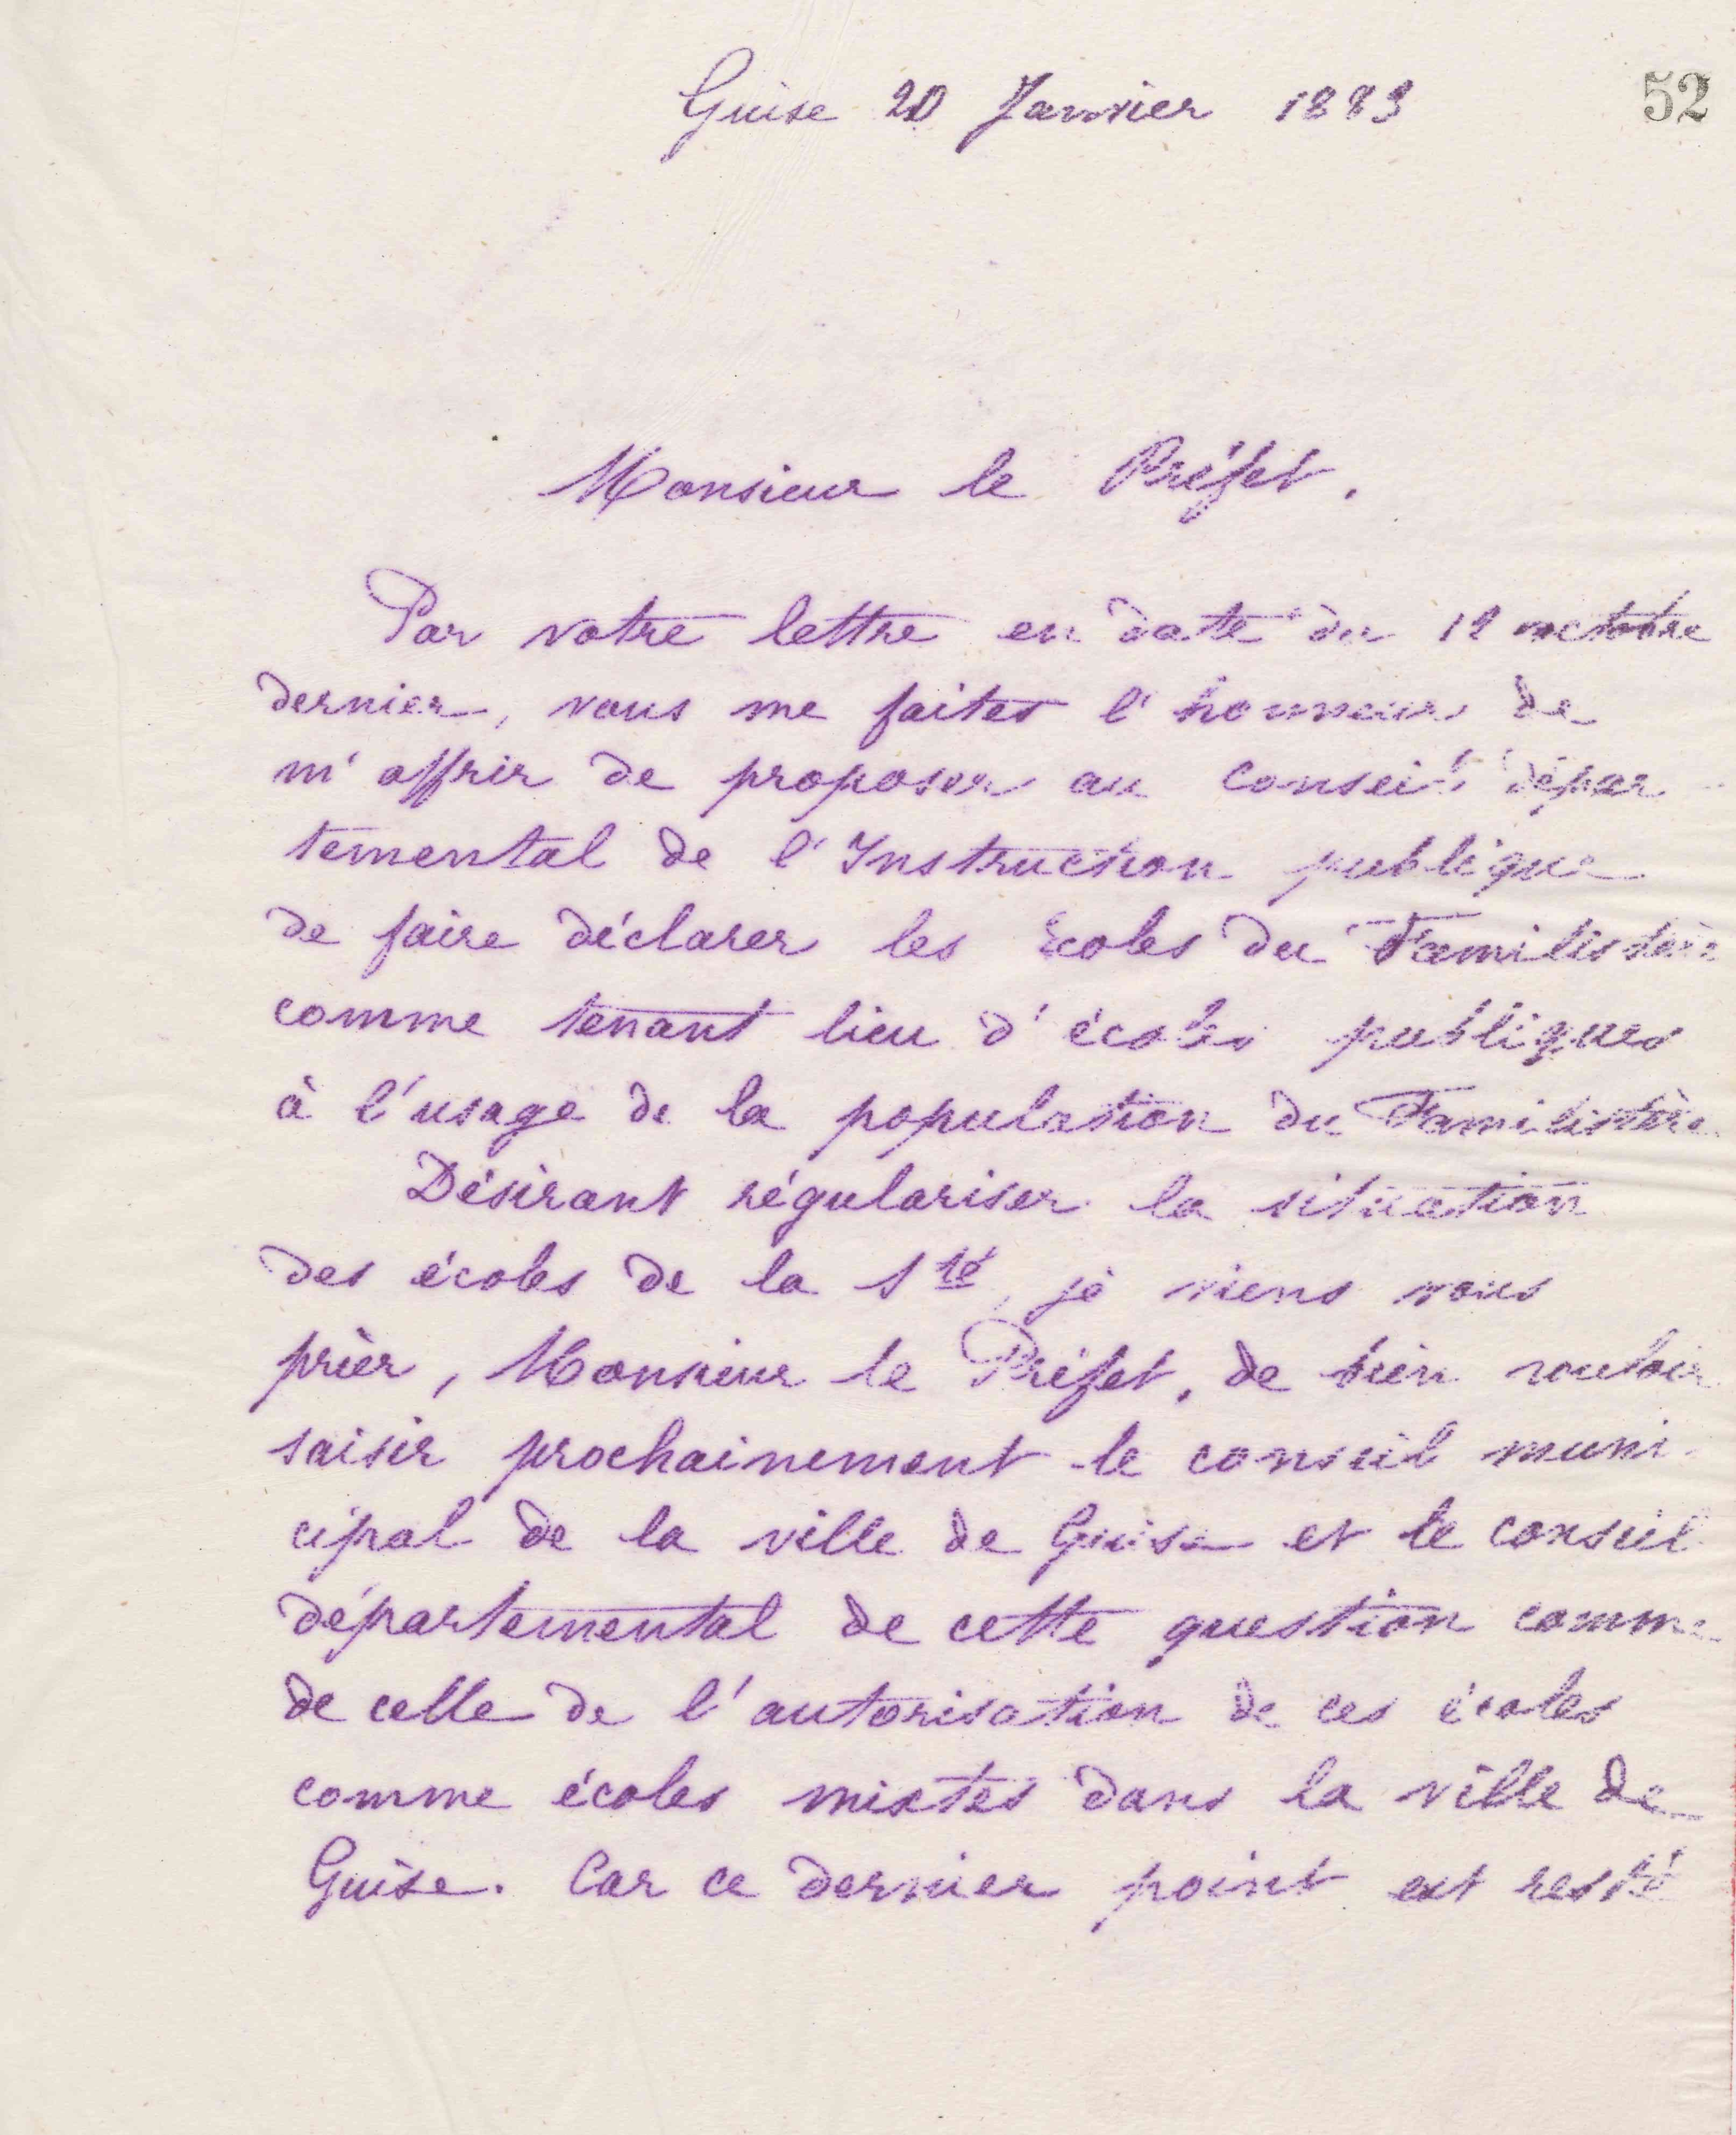 Guise 20 Janvier 1883
52
Monsieur le Préfet.
Par votre lettre en date du 12 octobre
dernier, vous me faites l'honneur de
m'offrir de proposer au conseil dépar
temental de l'Instruction publique
de faire déclarer les Ecoles du Familistère
comme tenant lieu d'écoles publiques
à l'usage de la population du Familistère
Désirant régulariser la situation
des écoles de la Sté, je viens vous
prier, Monsieur le Préfet, de bien vouloir
saisir prochainement le conseil muni
cipal de la ville de Guise et le conseil
départemental de cette question comme
de celle de l'autorisation de ces écoles
comme écoles mixtes dans la ville de
Guise. Car ce dernier point est resté